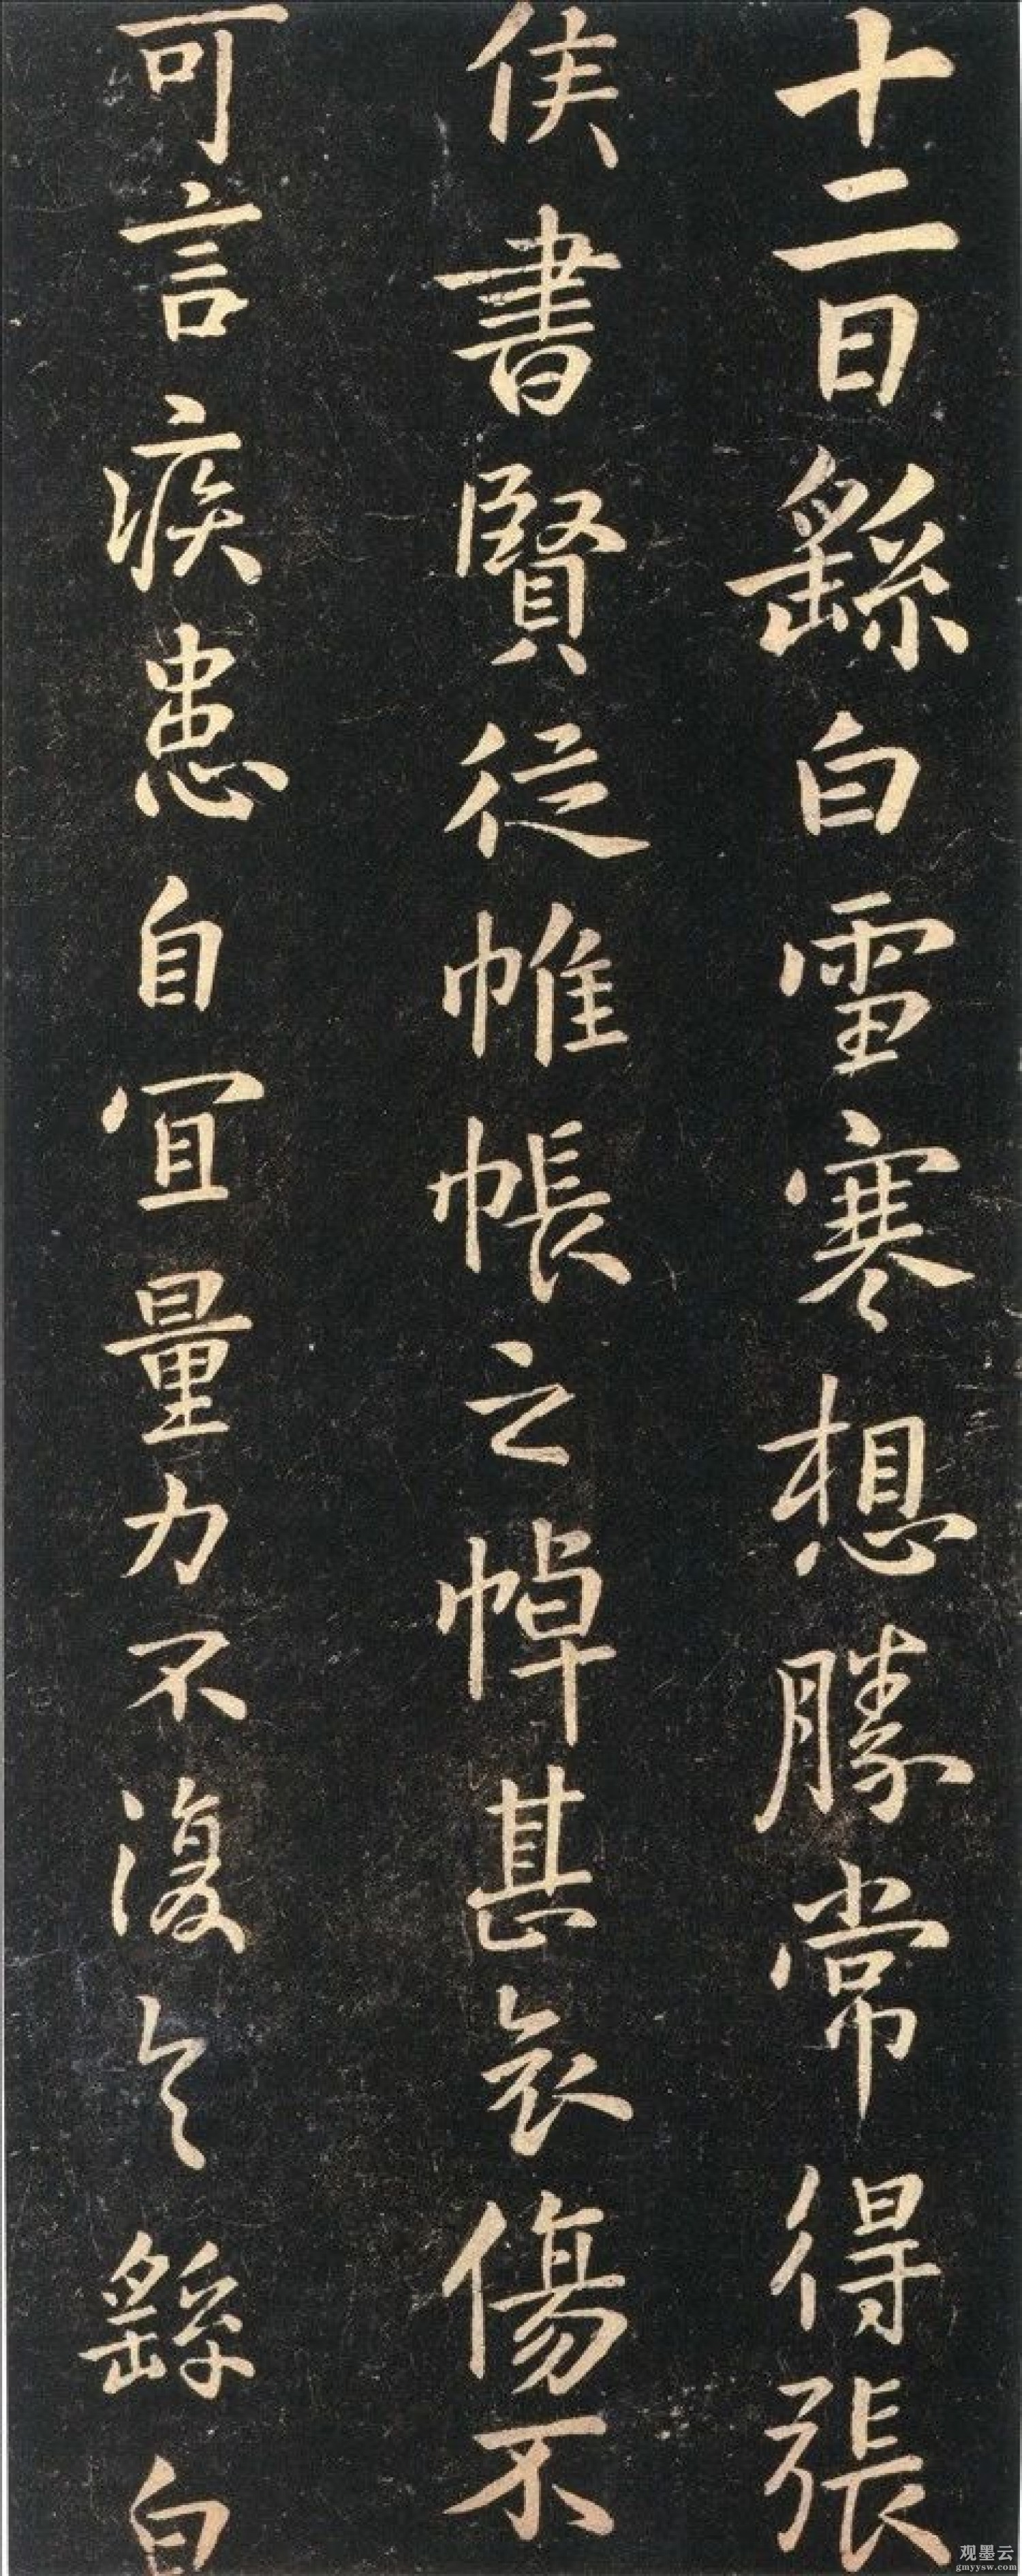 十二日繇白雪寒想勝常得張
侯書賢從帷帳之悼甚哀傷不
可言疾患自宜量力不復具繇白
观墨云
gmyysw.com